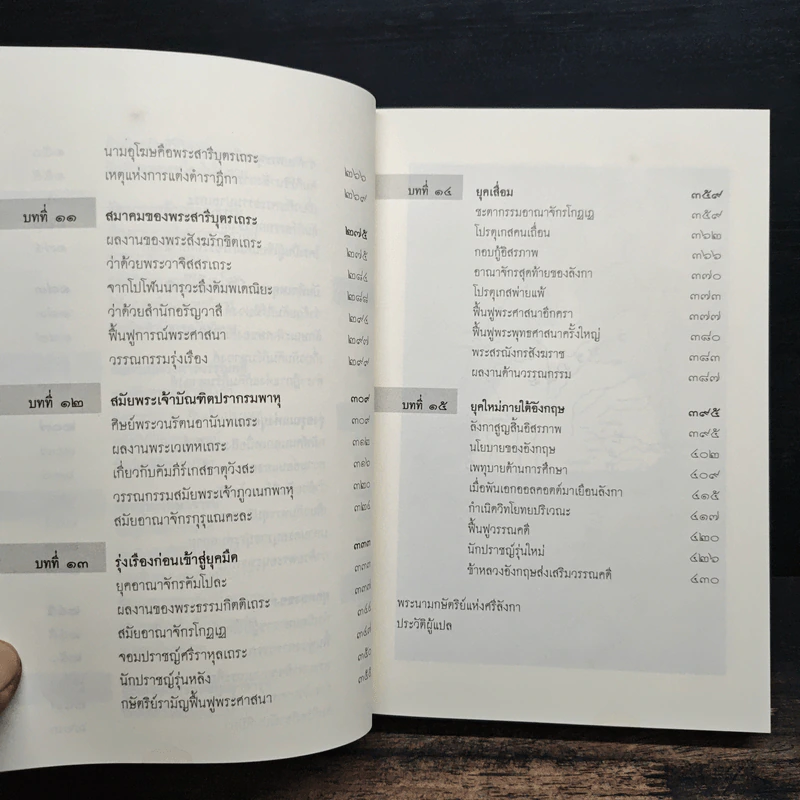 นามอุโฆษคือพระสารีบุตรเถระ ๒๖๖
เหตุแห่งการแต่งตำราฎีกา ๒๖๙
บทที่ ๑๑ สมาคมของพระสารีบุตรเถระ ๒๗๕
ผลงานของพระสังฆรักขิตเถระ ๒๗๕
ว่าด้วยพระวาจิสสรเถระ ๒๘๔
จากโปโฬนนารุวะถึงดัมพเดณิยะ ๒๘๘
ว่าด้วยสำนักอรัญวาสี ๒๙๔
ฟื้นฟูการณ์พระศาสนา ๒๙๗
วรรณกรรมรุ่งเรือง ๒๙๙
บทที่ ๑๒ สมัยพระเจ้าบัณฑิตปรากรมพาหุ ๓๐๙
ศิษย์พระวนรัตนอานันทเถระ ๓๐๙
ผลงานพระเวเทหเถระ ๓๑๒
เกี่ยวกับคัมภีร์เกสธาตุวังสะ ๓๑๖
วรรณกรรมสมัยพระเจ้าภูวเนกพาหุ ๓๒๐
สมัยอาณาจักรกุรุแณคะละ ๓๒๔
บทที่ ๑๓ รุ่งเรืองก่อนเข้าสู่ยุคมืด ๓๓๓
ยุคอาณาจักรคัมโปละ ๓๓๓
ผลงานของพระธรรมกิตติเถระ ๓๓๗
สมัยอาณาจักรโกฏเฏ ๓๔๔
จอมปราชญ์ศรีราหุลเถระ ๓๔๗
นักปราชญ์รุ่นหลัง ๓๕๐
กษัตริย์รามัญฟื้นฟูพระศาสนา ๓๕๕
บทที่ ๑๔ ยุคเสื่อม ๓๕๙
ชะตากรรมอาณาจักรโกฏเฏ ๓๕๙
โปรตุเกสคนเถื่อน ๓๖๒
กอบกู้อิสรภาพ ๓๖๖
อาณาจักรสุดท้ายของลังกา ๓๗๐
โปรตุเกสพ่ายแพ้ ๓๗๓
ฟื้นฟูพระศาสนาอีกครา ๓๗๗
ฟื้นฟูพระพุทธศาสนาครั้งใหญ่ ๓๘๐
พระสรณังกรสังฆราช ๓๘๓
ผลงานด้านวรรณกรรม ๓๘๗
บทที่ ๑๕ ยุคใหม่ภายใต้อังกฤษ ๓๙๕
ลังกาสูญสิ้นอิสรภาพ ๓๙๕
นโยบายของอังกฤษ ๔๐๒
เพทุบายด้านการศึกษา ๔๐๙
เมื่อพันเอกออลคอตต์มาเยือนลังกา ๔๑๕
กำเนิดวิทโยทยปริเวณะ ๔๑๗
ฟื้นฟูวรรณคดี ๔๒๐
นักปราชญ์รุ่นใหม่ ๔๒๖
ข้าหลวงอังกฤษส่งเสริมวรรณคดี ๔๓๐
พระนามกษัตริย์แห่งศรีลังกา
ประวัติผู้แปล